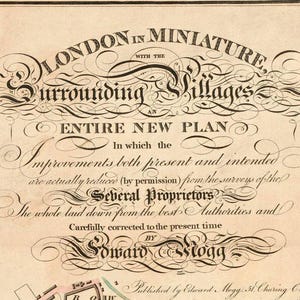 LONDON IN MINIATURE,
WITH THE
Surrounding Villages
AN
ENTIRE NEW PLAN
In which the
Improvements both present and intended
are actually reduced (by permission) from the surveys of the
Several Proprietors
The whole laid down from the best Authorities and
Carefully corrected to the present time
BY
Edward Mogg
Published by Edward Mogg, 51, Charing C